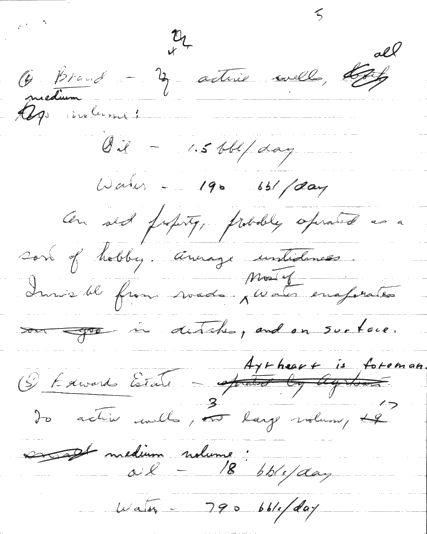 5
④ Brand - active wells, all
medium volume:
Oil - 1.5 bbl/day
Water - 190 bbl/day
An old property, probably operated as a
sort of hobby. Average untidiness.
Invisible from roads. Most of Water evaporates
in ditches, and on surface.
Ayrheart is foreman.
⑤ Edwards Estate - operated by
20 active wells, 3 large volume, 17
small medium volume:
oil - 18 bbls/day
Water - 790 bbls/day